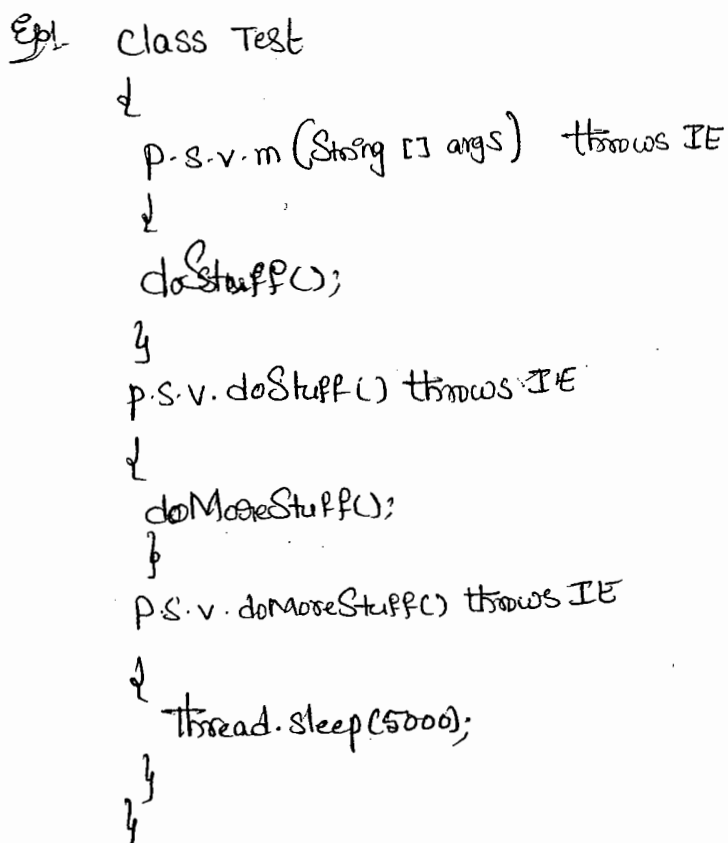 Ex:- class Test
{
p.s.v.m (String [] args) throws IE
{
doStuff();
}
p.s.v. doStuff() throws IE
{
doMoreStuff();
}
p.s.v. doMoreStuff() throws IE
{
thread.sleep(5000);
}
}